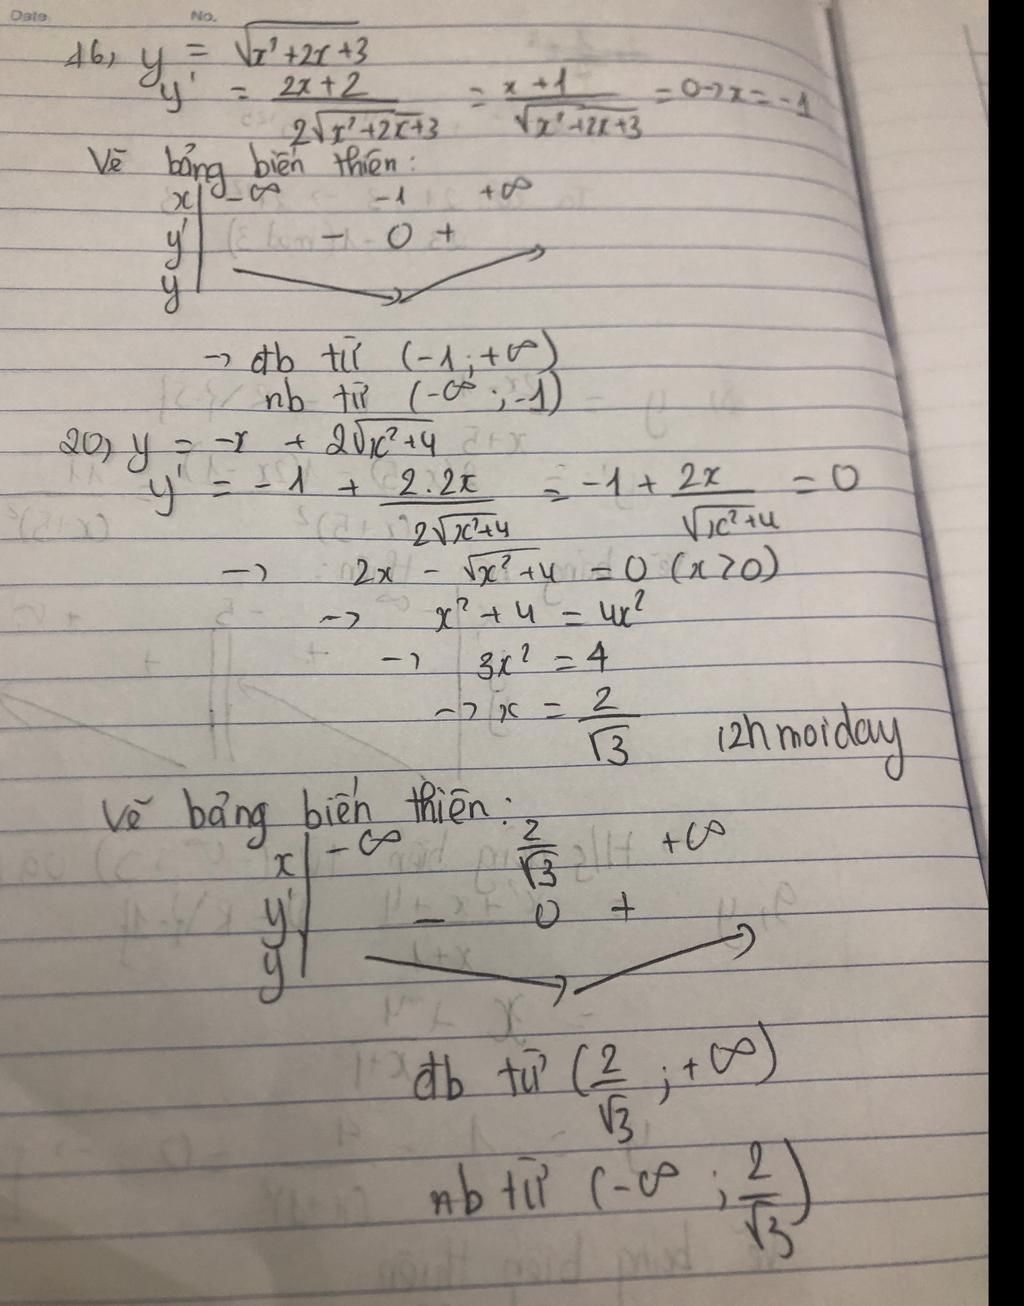 Date No.
16, y = √(x²+2x+3)
y' = (2x+2)/(2√(x²+2x+3)) = (x+1)/(√(x²+2x+3)) = 0 -> x = -1
Vẽ bảng biến thiên:
x | -∞ -1 +∞
y' | - 0 +
y
-> đb từ (-1; +∞)
nb từ (-∞; -1)
20, y = -x + 2√(x²+4)
y' = -1 + (2.2x)/(2√(x²+4)) = -1 + 2x/√(x²+4) = 0
-> 2x - √(x²+4) = 0 (x>0)
-> x² + 4 = 4x²
-> 3x² = 4
-> x = 2/√3 12hmoiday
Vẽ bảng biến thiên:
x | -∞ 2/√3 +∞
y' | - 0 +
y
đb từ (2/√3; +∞)
nb từ (-∞; 2/√3)